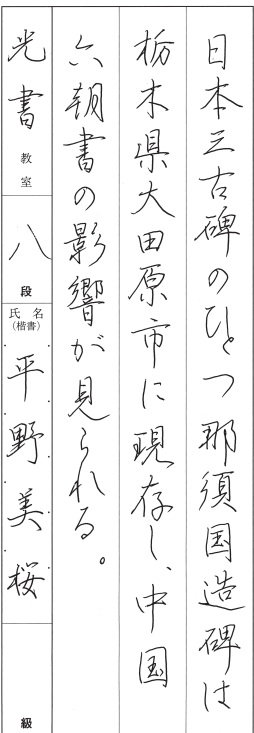 日本三古碑のひとつ那須国造碑は
栃木県大田原市に現存し、中国
六朝書の影響が見られる。
光書 教室 八 段 氏名（楷書） 平野美桜 級